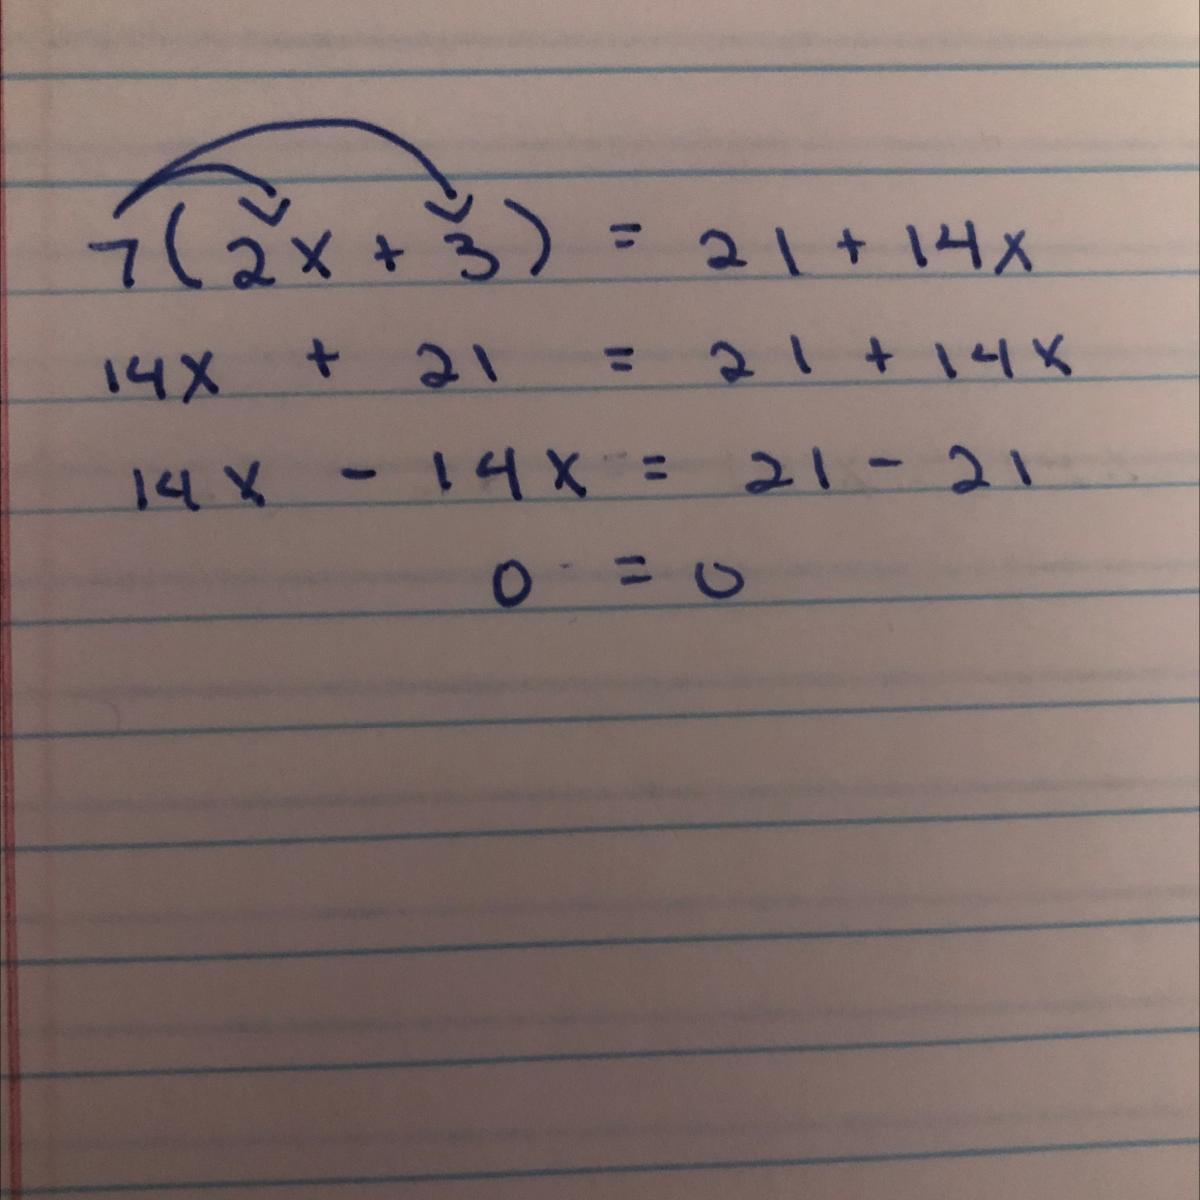 7(2x + 3) = 21 + 14x
14x + 21 = 21 + 14x
14x - 14x = 21 - 21
0 = 0